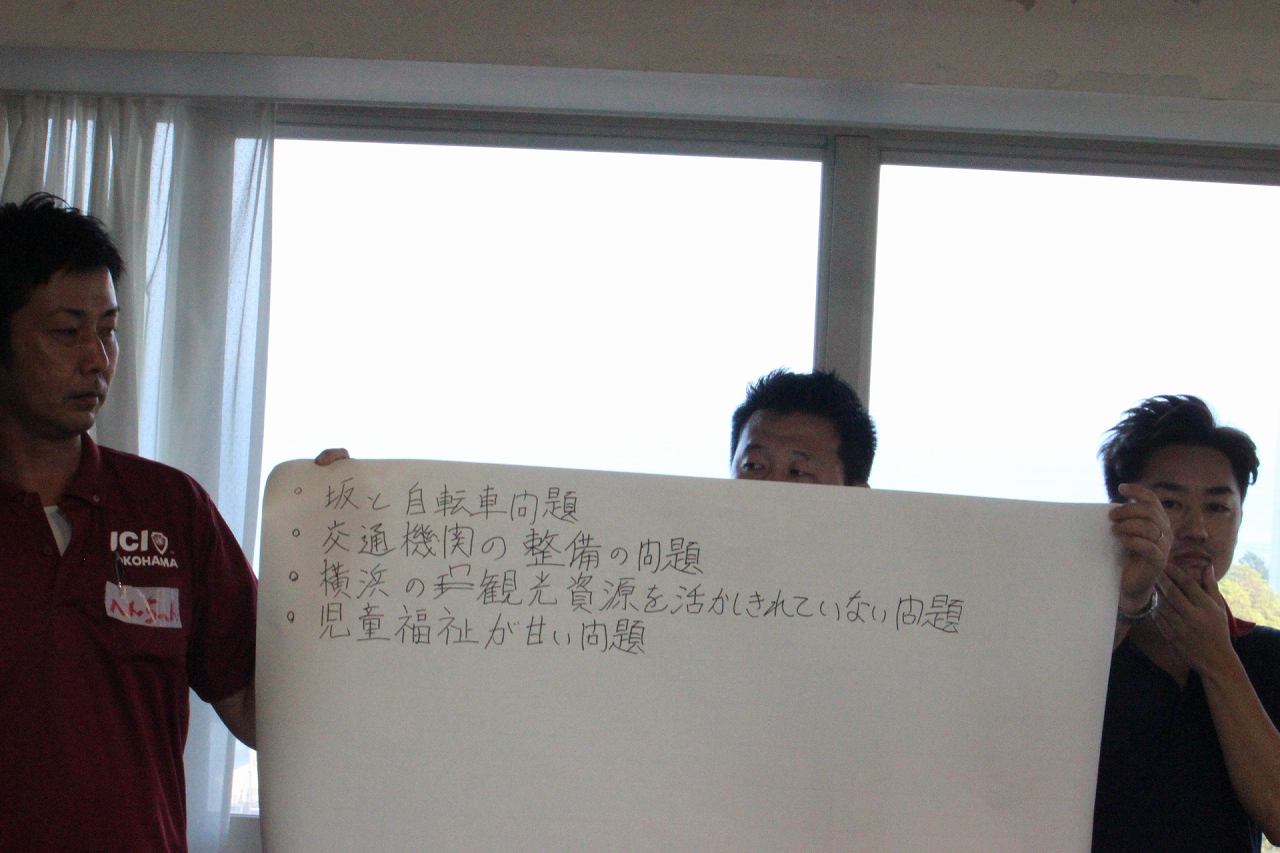 。坂と自転車問題
。交通機関の整備の問題
。横浜の観光資源を活かしきれていない問題
。児童福祉が甘い問題
JCI
YOKOHAMA